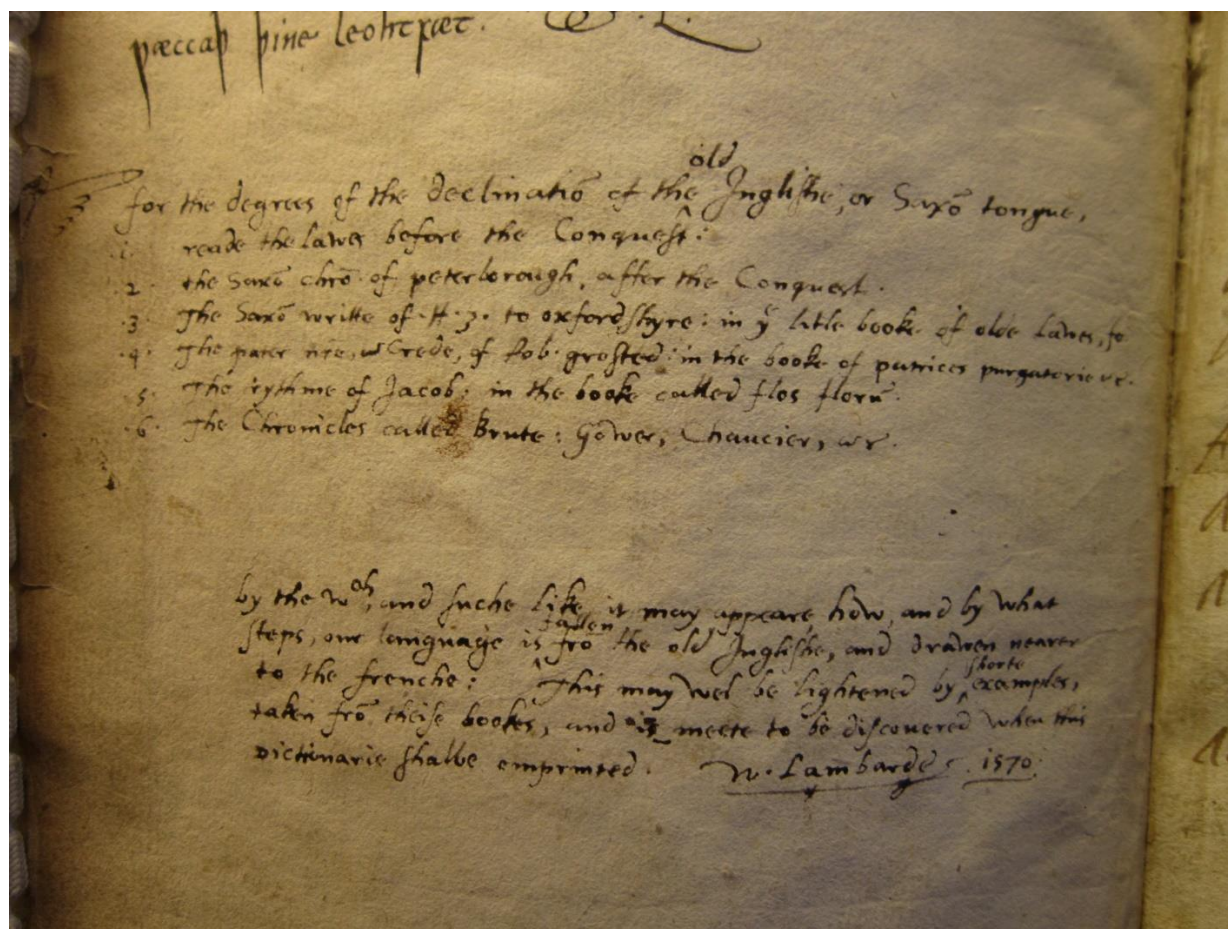 ƿæccaþ ƿine leohtfæt. W. L.
for the degrees of the declinatiō of the old Inglishe, or Saxō tongue,
1. reade the lawes before the Conquest:
.2. the Saxō chrō. of peterborough, after the Conquest.
.3. The Saxō writte of .H.3. to oxfordshyre: in yͤ litle booke of olde lawes, fo
.4. The pater nr̄e, & Crede, of Rob. grosted: in the booke of patrices purgatorie &c.
5. The rythme of Jacob: in the booke called flos florū.
.6. The Chronicles called Brute: Gower, Chaucier, &c.
by the wᶜʰ, and suche like, it may appeare, how, and by what
steps, our language is fallen frō the old Inglishe, and drawen nearer
to the frenche: This may wel be lightened by shorte examples,
taken frō theise bookes, and is meete to be discovered when this
Dictionarie shalbe emprinted. W. Lambarde. 1570.